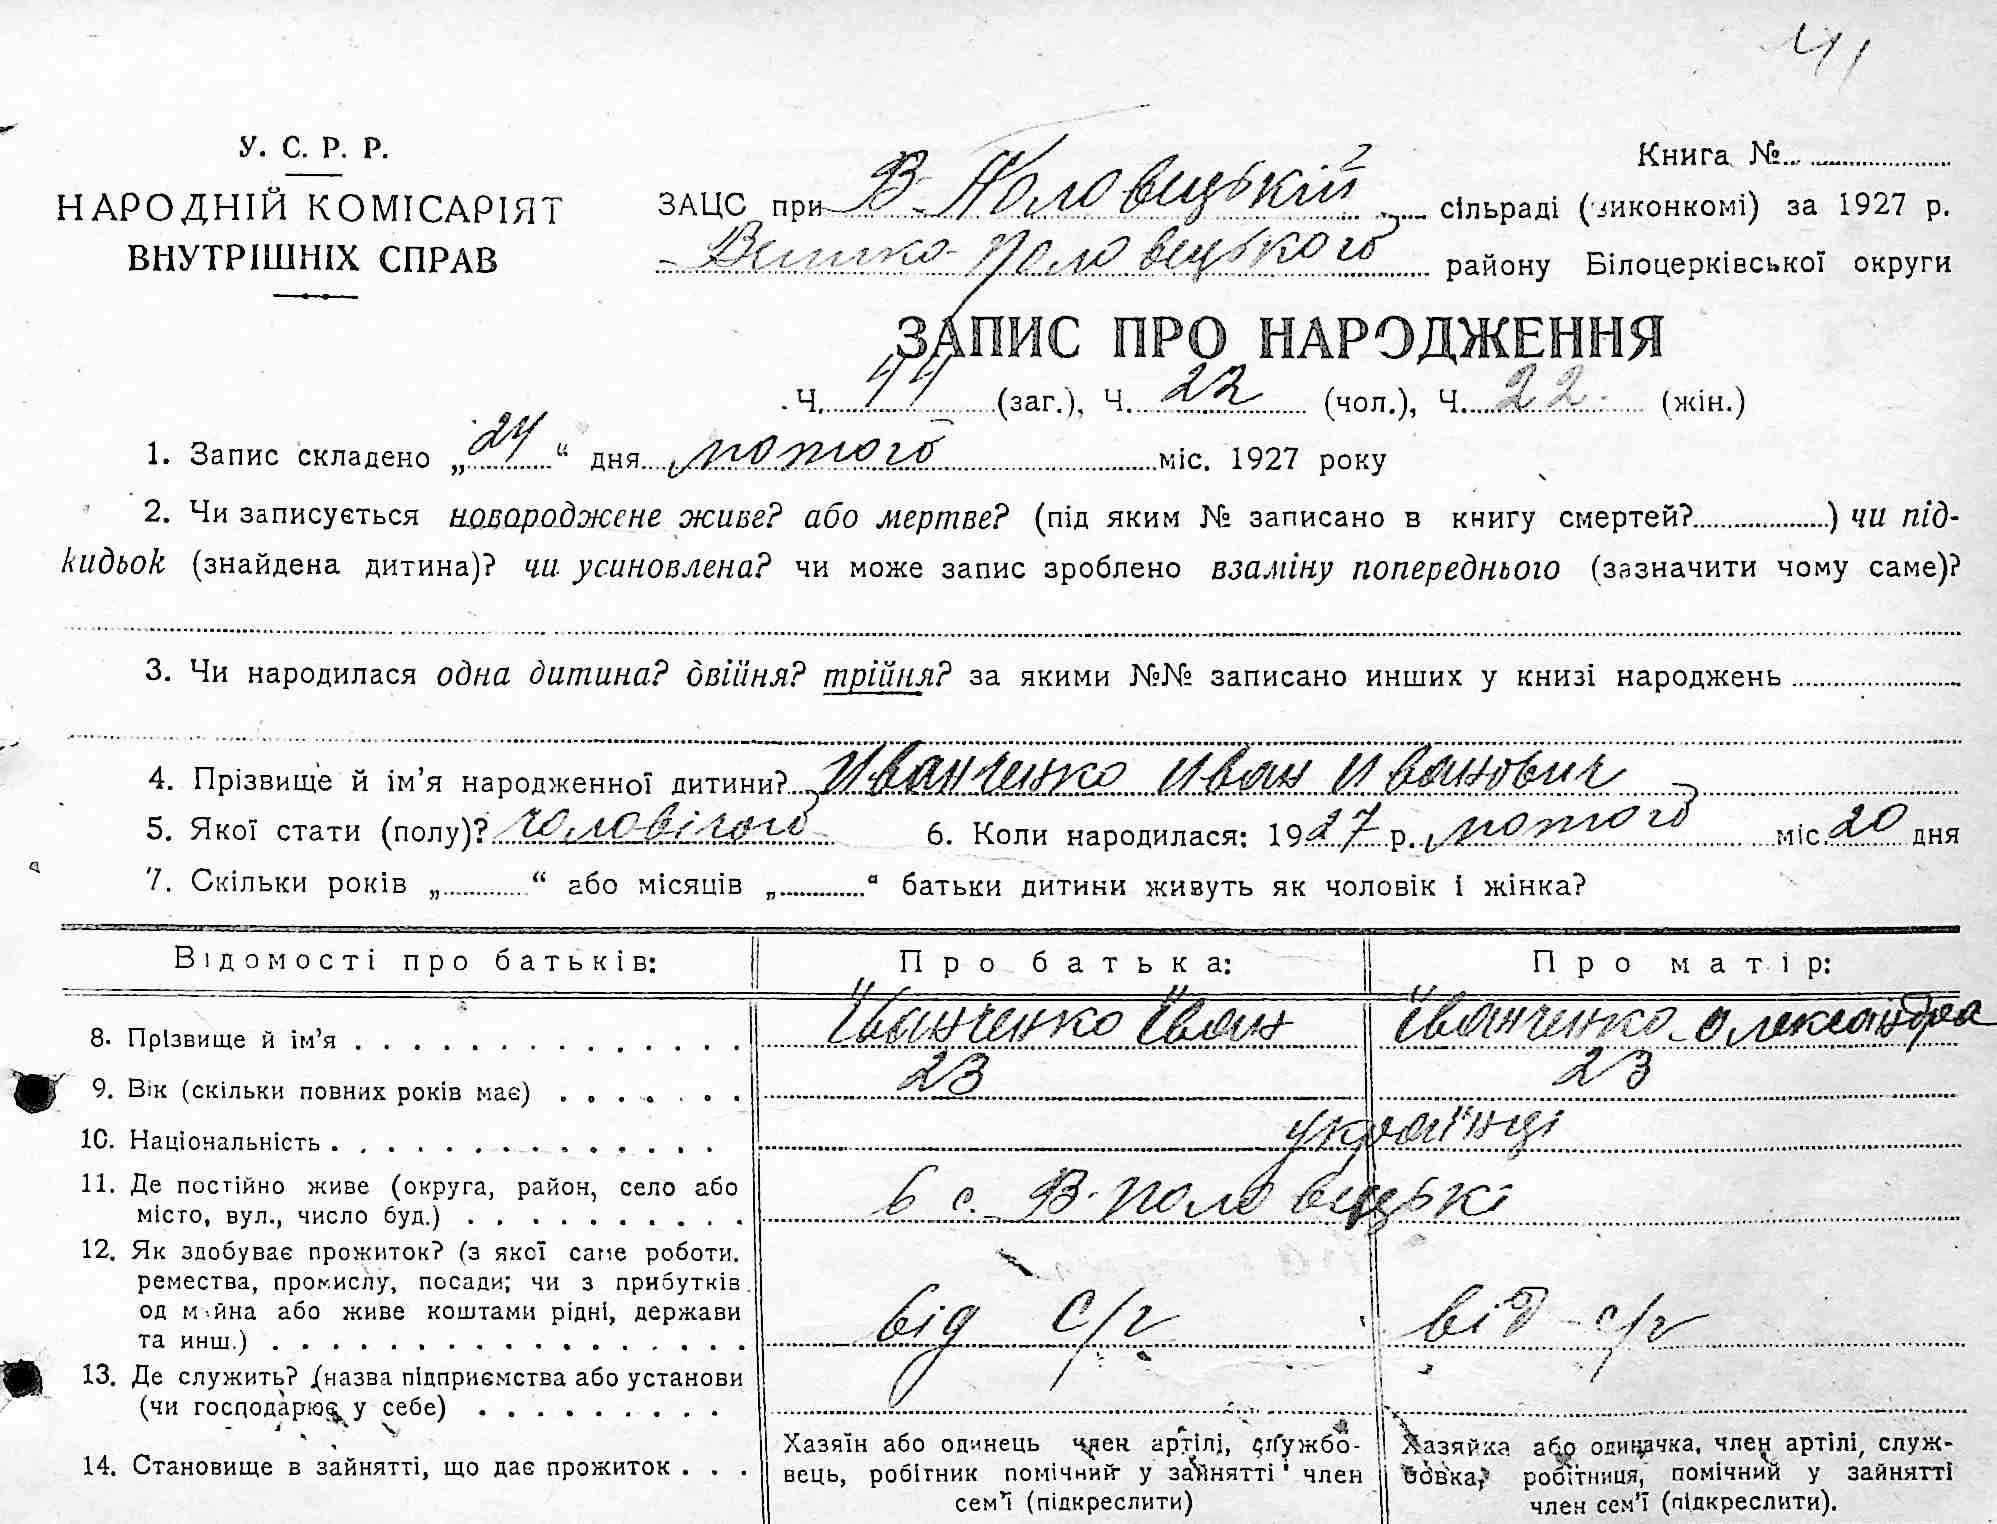 41
У. С. Р. Р.
НАРОДНІЙ КОМІСАРІЯТ
ВНУТРІШНІХ СПРАВ
Книга №
ЗАЦС при В-Половецькій сільраді (виконкомі) за 1927 р.
Велико-Половецького району Білоцерківської округи
ЗАПИС ПРО НАРОДЖЕННЯ
Ч. 44 (заг.), Ч. 22 (чол.), Ч. 22 (жін.)
1. Запис складено „24“ дня лютого міс. 1927 року
2. Чи записується новороджене живе? або мертве? (під яким № записано в книгу смертей?) чи під-
кидьок (знайдена дитина)? чи усиновлена? чи може запис зроблено взаміну попереднього (зазначити чому саме)?
3. Чи народилася одна дитина? двійня? трійня? за якими №№ записано инших у книзі народжень
4. Прізвище й ім’я народженної дитини? Иванченко Иван Иванович
5. Якої стати (полу)? чоловічого 6. Коли народилася: 1927 р. лютого міс. 20 дня
7. Скільки років „ “ або місяців „ “ батьки дитини живуть як чоловік і жінка?
Відомості про батьків: Про батька: Про матір:
8. Прізвище й ім’я Іванченко Іван Іванченко Олександра
9. Вік (скільки повних років має) 23 23
10. Національність українці
11. Де постійно живе (округа, район, село або
місто, вул., число буд.) в с. В-Половецькі
12. Як здобуває прожиток? (з якої саме роботи.
ремества, промислу, посади; чи з прибутків
од майна або живе коштами рідні, держави
та инш.) від с/г від с/г
13. Де служить? (назва підприємства або установи
(чи господарює у себе)
14. Становище в зайнятті, що дає прожиток
Хазяїн або одинець член артілі, службо-
вець, робітник помічний у зайнятті член
сем’ї (підкреслити)
Хазяйка або одиначка, член артілі, служ-
бовка, робітниця, помічний у зайнятті
член сем’ї (підкреслити).